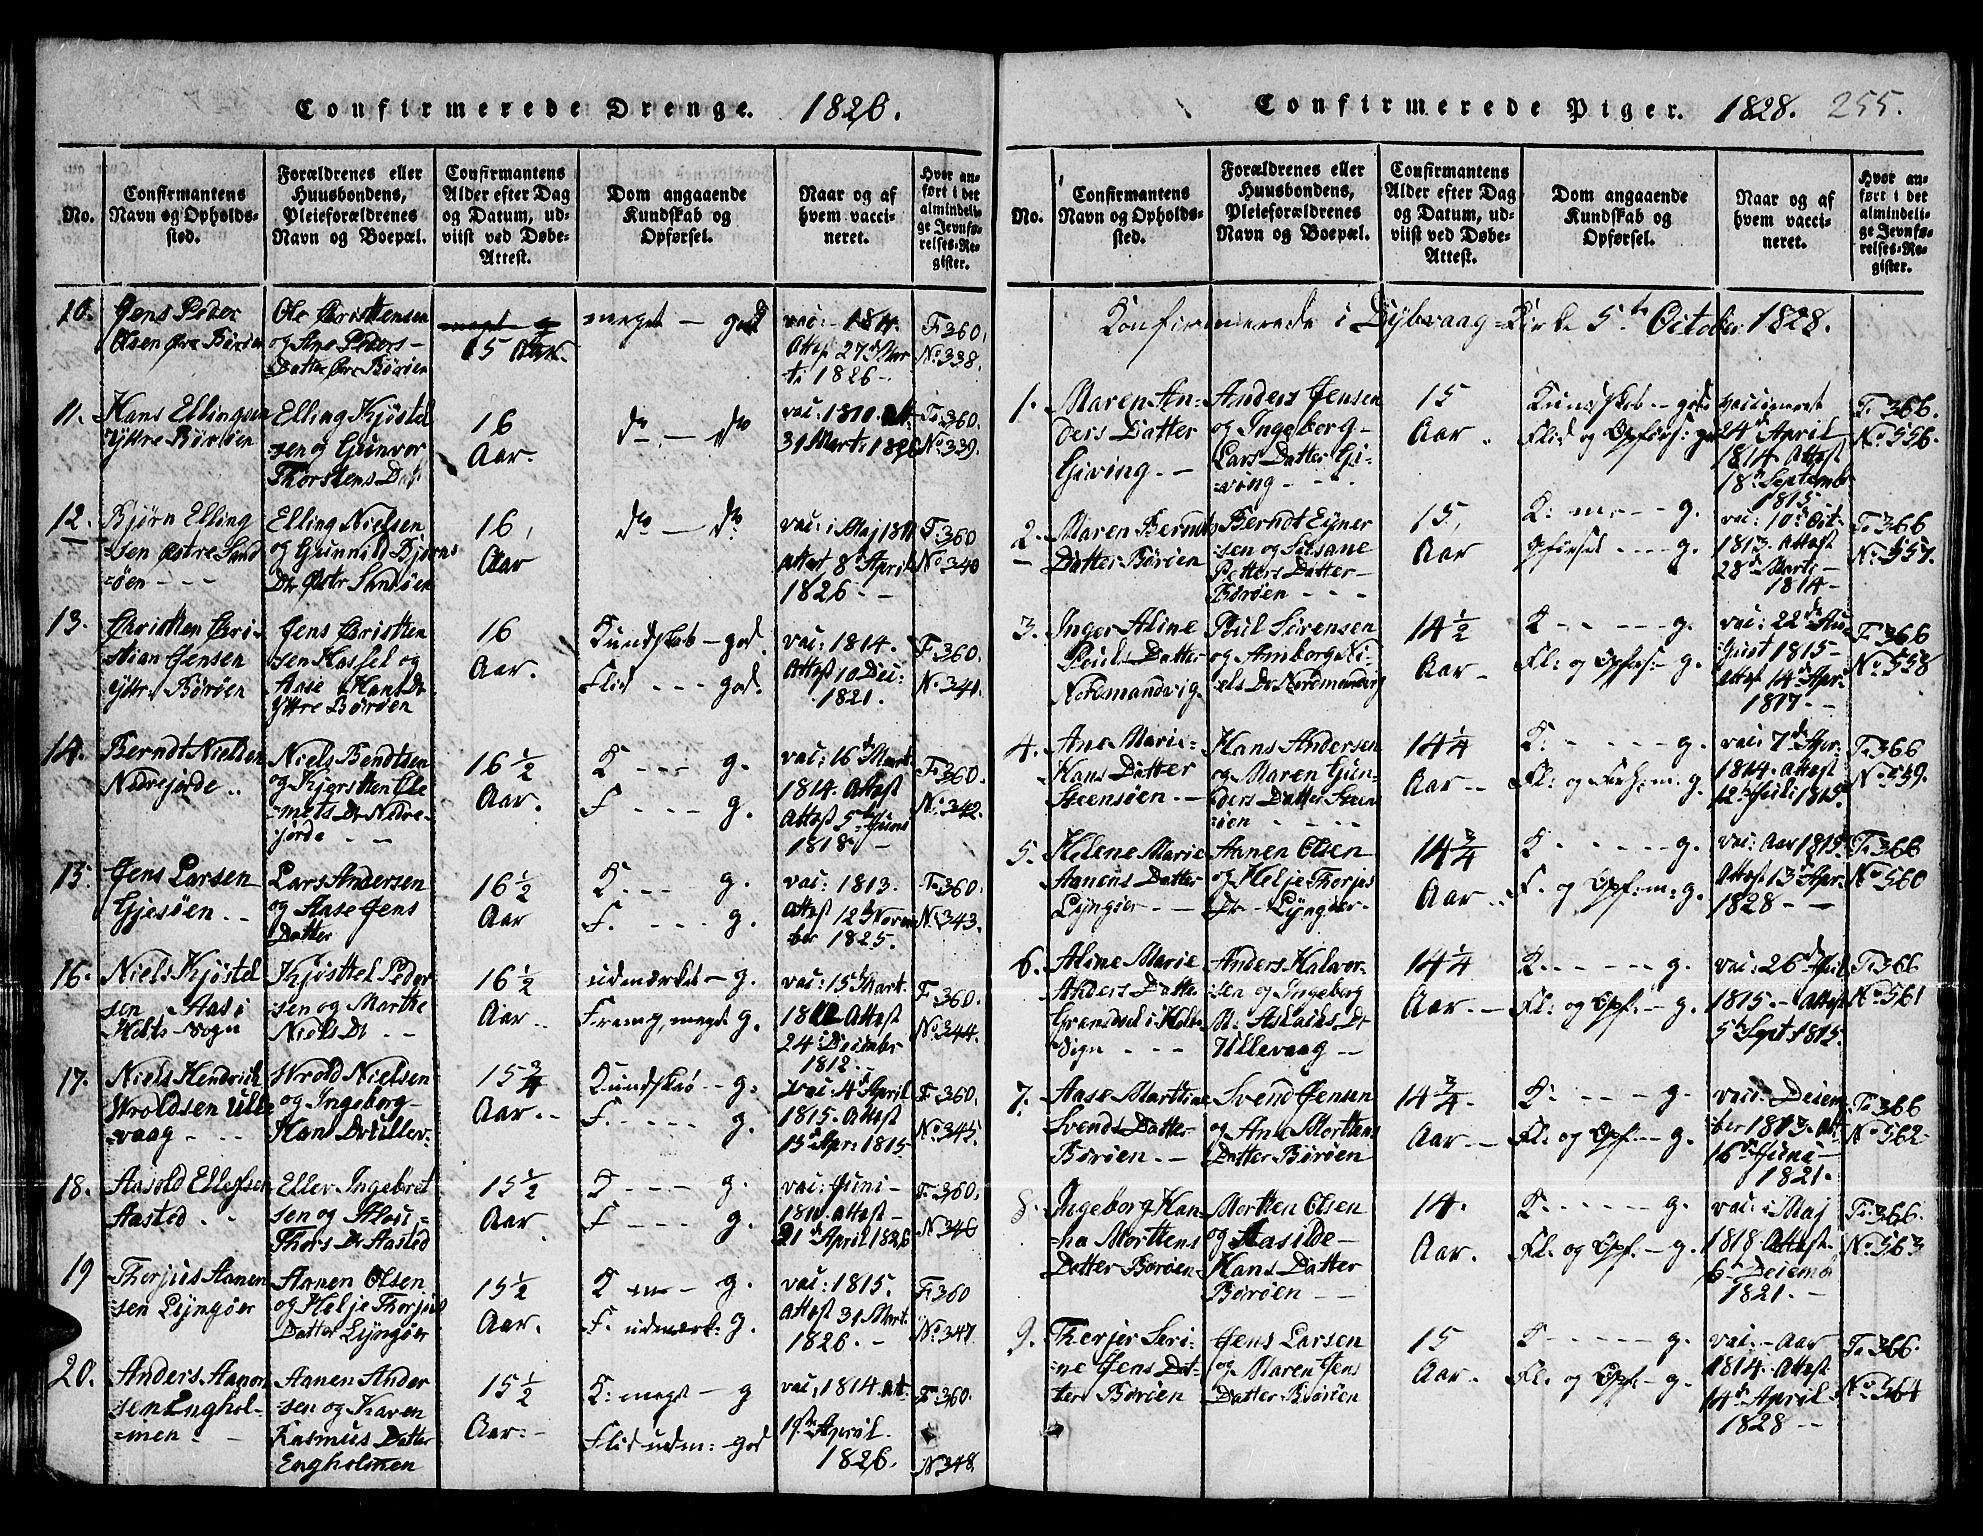 Confirmerede Drenge. 1826.
No.
Confirmantens Navn og Opholdssted.
Forældrenes eller Huusbondens, Pleieforældrenes Navn og Boepæl.
Confirmantens Alder efter Dag og Datum, udviist ved Døbe-Attest.
Dom angaaende Kundskab og Opførsel.
Naar og af hvem vaccineret.
Hvor anført i det almindelige Jevnførelses-Register.
10.
Jens Peder
Olsen Øre Böröen
Ole Christensen
og Ane Peders-
Datter Øre Böröen
15 Aar.
meget — god
vac: - 1814.
Attest 27d Mar
ti 1826 -
F. 360.
No 338.
11.
Hans Ellingsen
Yttre Böröen
Elling Kjöstel
sen og Gunvor
Thorstens Dat
16
Aar.
do — do
vac: 1810. att
31 Mart: 1826
F. 360.
No 339.
12.
Bjørn Elling
sen Østre Sand
=öen - - -
Elling Nielsen
og Gunnild Bjørns
Dr Østr Sandöen
16
Aar
do — do
vac: i Maj 1811
attest 8d April
1826. - -
F. 360
No 340
13.
Christen Chri-
stian Jensen
Yttr. Böröen
Jens Christen
sen Hassel og
Aase Hans Dr
Yttre Böröen
16
Aar.
Kundskab — god.
Flid - - - god.
vac: 1814.
Attest 10 Dec:
1821.
F. 360.
No 341.
14.
Berndt Nielsen
Nedrejorde ..
Niels Bendtsen
og Kjersten Cle
=mets Dr Nedre-
jorde - -
16 1/2
Aar.
K - - - g.
F - - - g.
vac: 16d Mart.
1814. Attest
Attest 5te Juni
1818. -
F. 360.
No 342.
15.
Jens Larsen
Gjesöen. . .
Lars Andersen
og Aase Jens
Datter
16 1/2
Aar
K. - - - g.
F. - - - g.
vac: 1813.
Attest 12d Novem
ber 1825.
F. 360.
No 343.
16.
Niels Kjöstel
sen Aas i
Holts - Sogn
Kjösttel Peder
sen og Marthe
Niels Dr - -
16 1/2
Aar. .
udmærket — g.
Fremg. meget g.
vac: 15d Mart.
1812 Attest
24 Decembr
1812.
F. 360.
No 344.
17.
Niels Hendrick
Wroldsen Ulle
=vaag - - -
Wrold Nielsen
og Ingeborg -
Hans Dr Ullev-
15 3/4
Aar. .
Kundskab - - g.
F. - - - - g.
vac: 4d April
1815. Attest
15d Apr: 1815.
F. 360.
No 345.
18.
Aasold Ellefsen
Aasted . . .
Ellev Ingebret
sen og
Thors Dr Aasted
15 1/2
Aar
K - - - g.
F - - - g.
vac: Juni -
Attest -
21d April 1826
F. 360.
No 346
19
Therjus Aanen
sen Lyngöer
Aanen Olsen
og Helje Thorjus
Datter Lyngöer
15 1/2
Aar.
K m - g.
F. udmærk: g.
vac: 1815.
Attest 31 Mart.
1826. -
F. 360
No 347.
20.
Anders Aanon
sen Enghol-
=men - -
Aanen Ander
sen og Karen
Rasmus Datter
Engholmen
15 1/2
Aar. -
K: meget - g
Flid udm: - god
vac: 1814. at
19d April.
1826.
F. 360.
No 348.
Confirmerede Piger. 1828. 255.
No.
Confirmantens Navn og Opholdssted.
Forældrenes eller Huusbondens, Pleieforældrenes Navn og Boepæl.
Confirmantens Alder efter Dag og Datum, udviist ved Døbe-Attest.
Dom angaaende Kundskab og Opførsel.
Naar og af hvem vaccineret.
Hvor anført i det almindelige Jevnførelses-Register.
Konfirmerede i Dybvaag=Kirke 5te October 1828.
1.
Maren An-
ders Datter
Giving. - -
Anders Jensen
og Ingeborg -
Lars Datter Gi-
=ving - - -
15
Aar .
Kundskab - - god
Flid og Opförs: god
vaccineret
24d April
1814. Attest
18d Septembr
1815.
F. 366.
No 556.
2.
Maren Berndts
Datter Böröen
Berndt Ejner
sen og Susane
Petters Datter -
Böröen - - -
15.
Aar
K: m - - g.
Opförsel - - - g.
vac: 10d Oct-
1813. Attest
28d Marti -
1814 -
F. 366
No 557.
3.
Inger Aline
Pouls Datter
Nordsmandvig.
Poul Sörensen
og Amborg Ni-
els Dr Nordmandvig
14 1/2
Aar -
K - - - - g.
Fl: og Opförs: - g.
vac: 22de Au
gust 1815 -
Attest 14d Apr:
1817. - -
F. 366
No 558
4.
Ane Marie -
Hans Datter
Steensöen. - -
Hans Andersen
og Maren Gun-
ders Datter Steen
=söen - - - -
14 1/4
Aar - -
K: - - - - g.
Fl: og m: g.
vac: 7d Apr.
1814. Attest
12te Juli 1815.
F. 366
No 559.
5.
Helene Marie
Aanens Datter
Lyngöer - -
Aanen Olsen
og Helje Thorjus
Dr - Lyngöer -
14 3/4
Aar - .
K - - - - - g.
F. og Opf: m: g.
vac: Aar 1815.
Attest 13d Apr.
1828 - -
F. 366
No 560
6.
Aline Marie
Anders Datter
Grandsel i Holt
Sogn - - -
Anders Halvor-
sen og Ingeborg
M: Aslacks Dr
Ullevaag - -
14 1/4
Aar. - -
K. - - - - - g.
Fl: og Opf: - g.
vac: 26d Jul
1815. - Attest
5d Sept 1815.
F. 366
No 561
7.
Aase Marthine
Svends Datter
Böröen. - -
Svend Jensen
og Ane Morthens
Datter Böröen
14 3/4
Aar. -
K - - - - g.
Fl: og Opf: - g.
vac: Decem
ber 1813. Att
16d Juni -
1821.
F. 366
No 562.
8.
Ingeborg Han-
=na Morttens
Datter Böröen
Mortten Olsen
og Aasilde -
Hans Datter
Böröen - -
14.
Aar.
K - - - - - g.
Fl. og Opf. - g.
vac: i Maj
1818. Attest.
6d Decembr
1821. -
F. 366.
No 563
9.
Therjer Seri-
=ne Jens Dat-
ter Böröen
Jens Larsen
og Maren Jens
Datter Böröen
15
Aar. .
K - - - - - g.
Fl. og Opf: - g.
vac: - Aar
1814. Attest
14d April
1828 - -
F. 366.
No 564